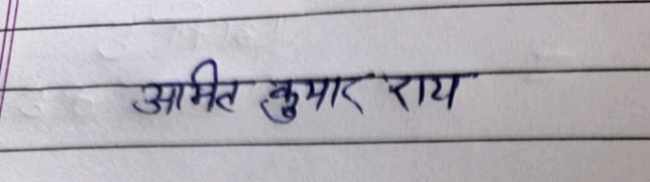 अमित कुमार राय